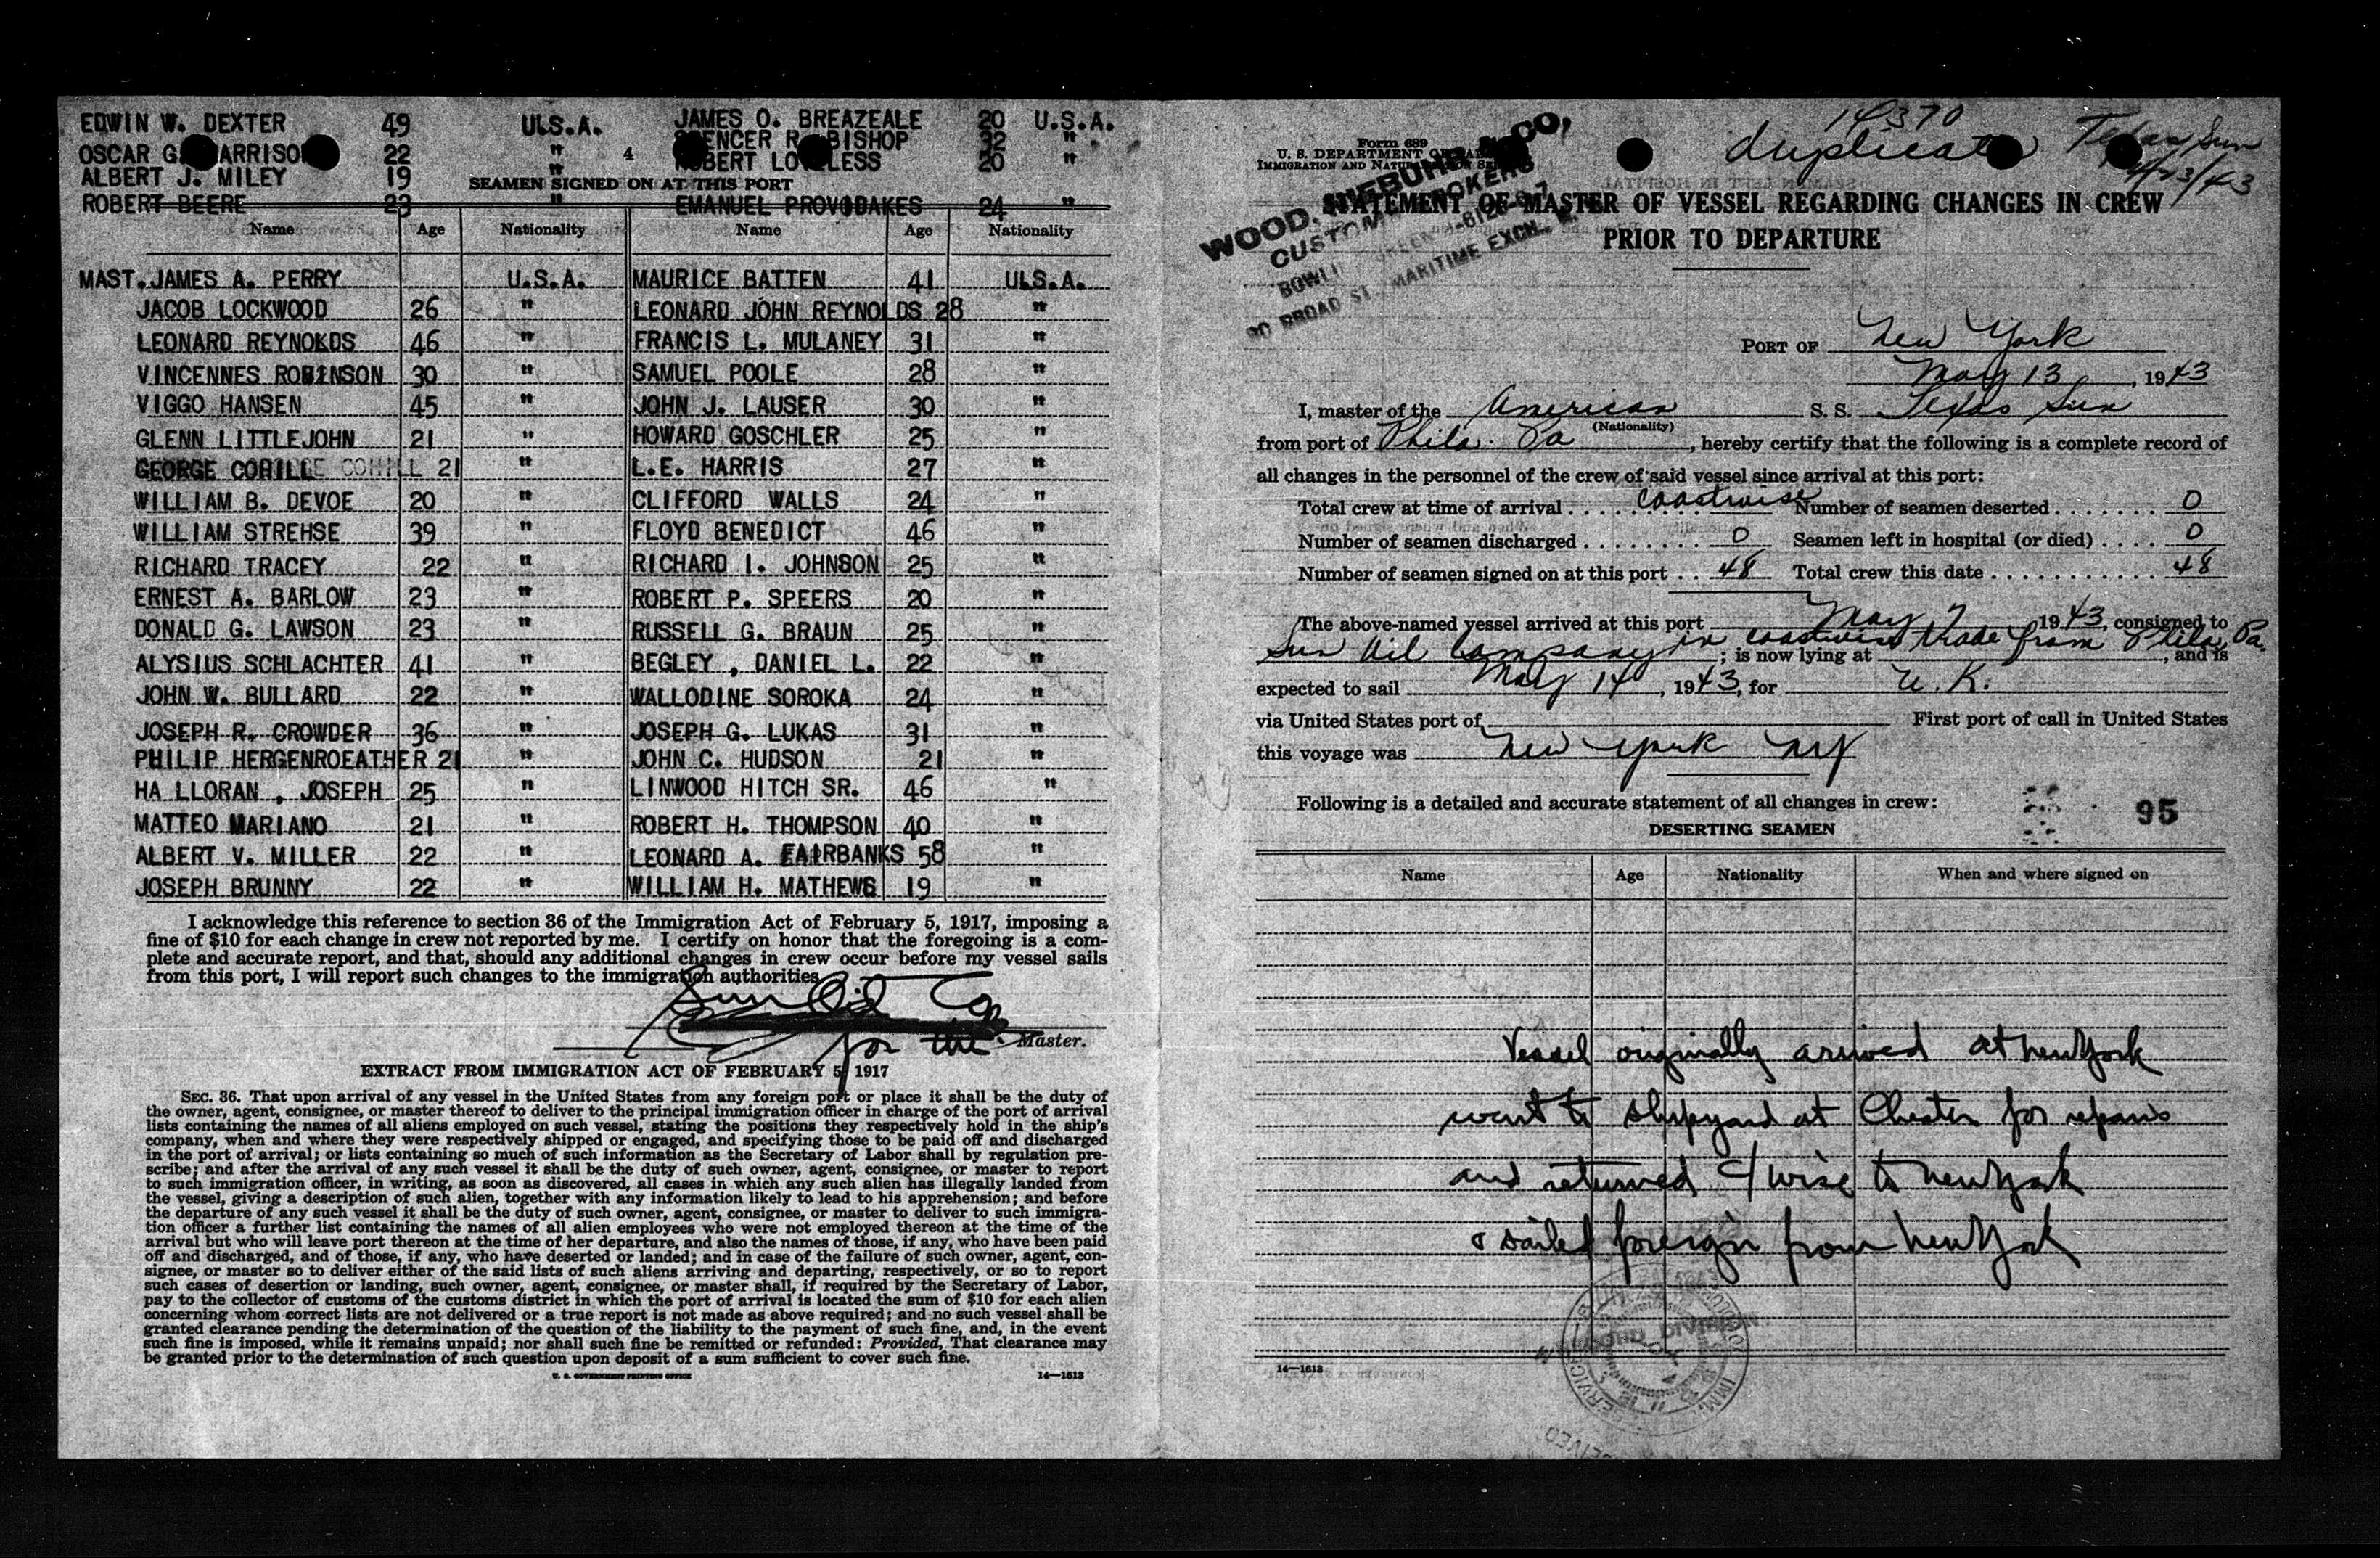 EDWIN W. DEXTER 49 U.S.A. JAMES O. BREAZEALE 20 U.S.A.
OSCAR G. ARRISO 22 " ENCER R. BISHOP 32 "
4
ALBERT J. MILEY 19 " BERT LO LESS 20 "
SEAMEN SIGNED ON AT THIS PORT
ROBERT BEERE 23 " EMANUEL PROVODAKES 24 "
Name Age Nationality Name Age Nationality
MAST. JAMES A. PERRY U.S.A. MAURICE BATTEN 41 U.S.A.
JACOB LOCKWOOD 26 " LEONARD JOHN REYNOLDS 28 "
LEONARD REYNOLDS 46 " FRANCIS L. MULANEY 31 "
VINCENNES ROBINSON 30 " SAMUEL POOLE 28 "
VIGGO HANSEN 45 " JOHN J. LAUSER 30 "
GLENN LITTLEJOHN 21 " HOWARD GOSCHLER 25 "
GEORGE COHILL 21 " L.E. HARRIS 27 "
WILLIAM B. DEVOE 20 " CLIFFORD WALLS 24 "
WILLIAM STREHSE 39 " FLOYD BENEDICT 46 "
RICHARD TRACEY 22 " RICHARD I. JOHNSON 25 "
ERNEST A. BARLOW 23 " ROBERT P. SPEERS 20 "
DONALD G. LAWSON 23 " RUSSELL G. BRAUN 25 "
ALYSIUS SCHLACHTER 41 " BEGLEY , DANIEL L. 22 "
JOHN W. BULLARD 22 " WALLODINE SOROKA 24 "
JOSEPH R. CROWDER 36 " JOSEPH G. LUKAS 31 "
PHILIP HERGENROEATHER 21 " JOHN C. HUDSON 21 "
HA LLORAN , JOSEPH 25 " LINWOOD HITCH SR. 46 "
MATTEO MARIANO 21 " ROBERT H. THOMPSON 40 "
ALBERT V. MILLER 22 " LEONARD A. FAIRBANKS 58 "
JOSEPH BRUNNY 22 " WILLIAM H. MATHEWS 19 "
I acknowledge this reference to section 36 of the Immigration Act of February 5, 1917, imposing a
fine of $10 for each change in crew not reported by me. I certify on honor that the foregoing is a com-
plete and accurate report, and that, should any additional changes in crew occur before my vessel sails
from this port, I will report such changes to the immigration authorities.
Sun Oil Co
for the Master.
EXTRACT FROM IMMIGRATION ACT OF FEBRUARY 5, 1917
SEC. 36. That upon arrival of any vessel in the United States from any foreign port or place it shall be the duty of
the owner, agent, consignee, or master thereof to deliver to the principal immigration officer in charge of the port of arrival
lists containing the names of all aliens employed on such vessel, stating the positions they respectively hold in the ship's
company, when and where they were respectively shipped or engaged, and specifying those to be paid off and discharged
in the port of arrival; or lists containing so much of such information as the Secretary of Labor shall by regulation pre-
scribe; and after the arrival of any such vessel it shall be the duty of such owner, agent, consignee, or master to report
to such immigration officer, in writing, as soon as discovered, all cases in which any such alien has illegally landed from
the vessel, giving a description of such alien, together with any information likely to lead to his apprehension; and before
the departure of any such vessel it shall be the duty of such owner, agent, consignee, or master to deliver to such immigra-
tion officer a further list containing the names of all alien employees who were not employed thereon at the time of the
arrival but who will leave port thereon at the time of her departure, and also the names of those, if any, who have been paid
off and discharged, and of those, if any, who have deserted or landed; and in case of the failure of such owner, agent, con-
signee, or master so to deliver either of the said lists of such aliens arriving and departing, respectively, or so to report
such cases of desertion or landing, such owner, agent, consignee, or master shall, if required by the Secretary of Labor,
pay to the collector of customs of the customs district in which the port of arrival is located the sum of $10 for each alien
concerning whom correct lists are not delivered or a true report is not made as above required; and no such vessel shall be
granted clearance pending the determination of the question of the liability to the payment of such fine, and, in the event
such fine is imposed, while it remains unpaid; nor shall such fine be remitted or refunded: Provided, That clearance may
be granted prior to the determination of such question upon deposit of a sum sufficient to cover such fine.
U. S. GOVERNMENT PRINTING OFFICE 14—1613
14370
duplicate Texas Sun
4/23/43
Form 689
U. S. DEPARTMENT OF
IMMIGRATION AND
WOOD, NIEBUHR & CO,
CUSTOM BROKERS
BOWLING GREEN
BROAD ST. MARITIME EXCH.
STATEMENT OF MASTER OF VESSEL REGARDING CHANGES IN CREW
PRIOR TO DEPARTURE
PORT OF New York
May 13, 1943
I, master of the American S. S. Texas Sun
(Nationality)
from port of Phila. Pa, hereby certify that the following is a complete record of
all changes in the personnel of the crew of said vessel since arrival at this port:
Total crew at time of arrival coastwise Number of seamen deserted 0
Number of seamen discharged 0 Seamen left in hospital (or died) 0
Number of seamen signed on at this port 48 Total crew this date 48
The above-named vessel arrived at this port May 7 1943, consigned to
Sun Oil Company in coastwise trade from Phila, Pa.; is now lying at , and is
expected to sail May 14, 1943, for U. K.
via United States port of First port of call in United States
this voyage was New York NY
Following is a detailed and accurate statement of all changes in crew:
95
DESERTING SEAMEN
Name Age Nationality When and where signed on
Vessel originally arrived at New York
went to shipyard at Chester for repairs
and returned c/wise to New York
& sailed foreign from New York
RECORD DIVISION
14—1613